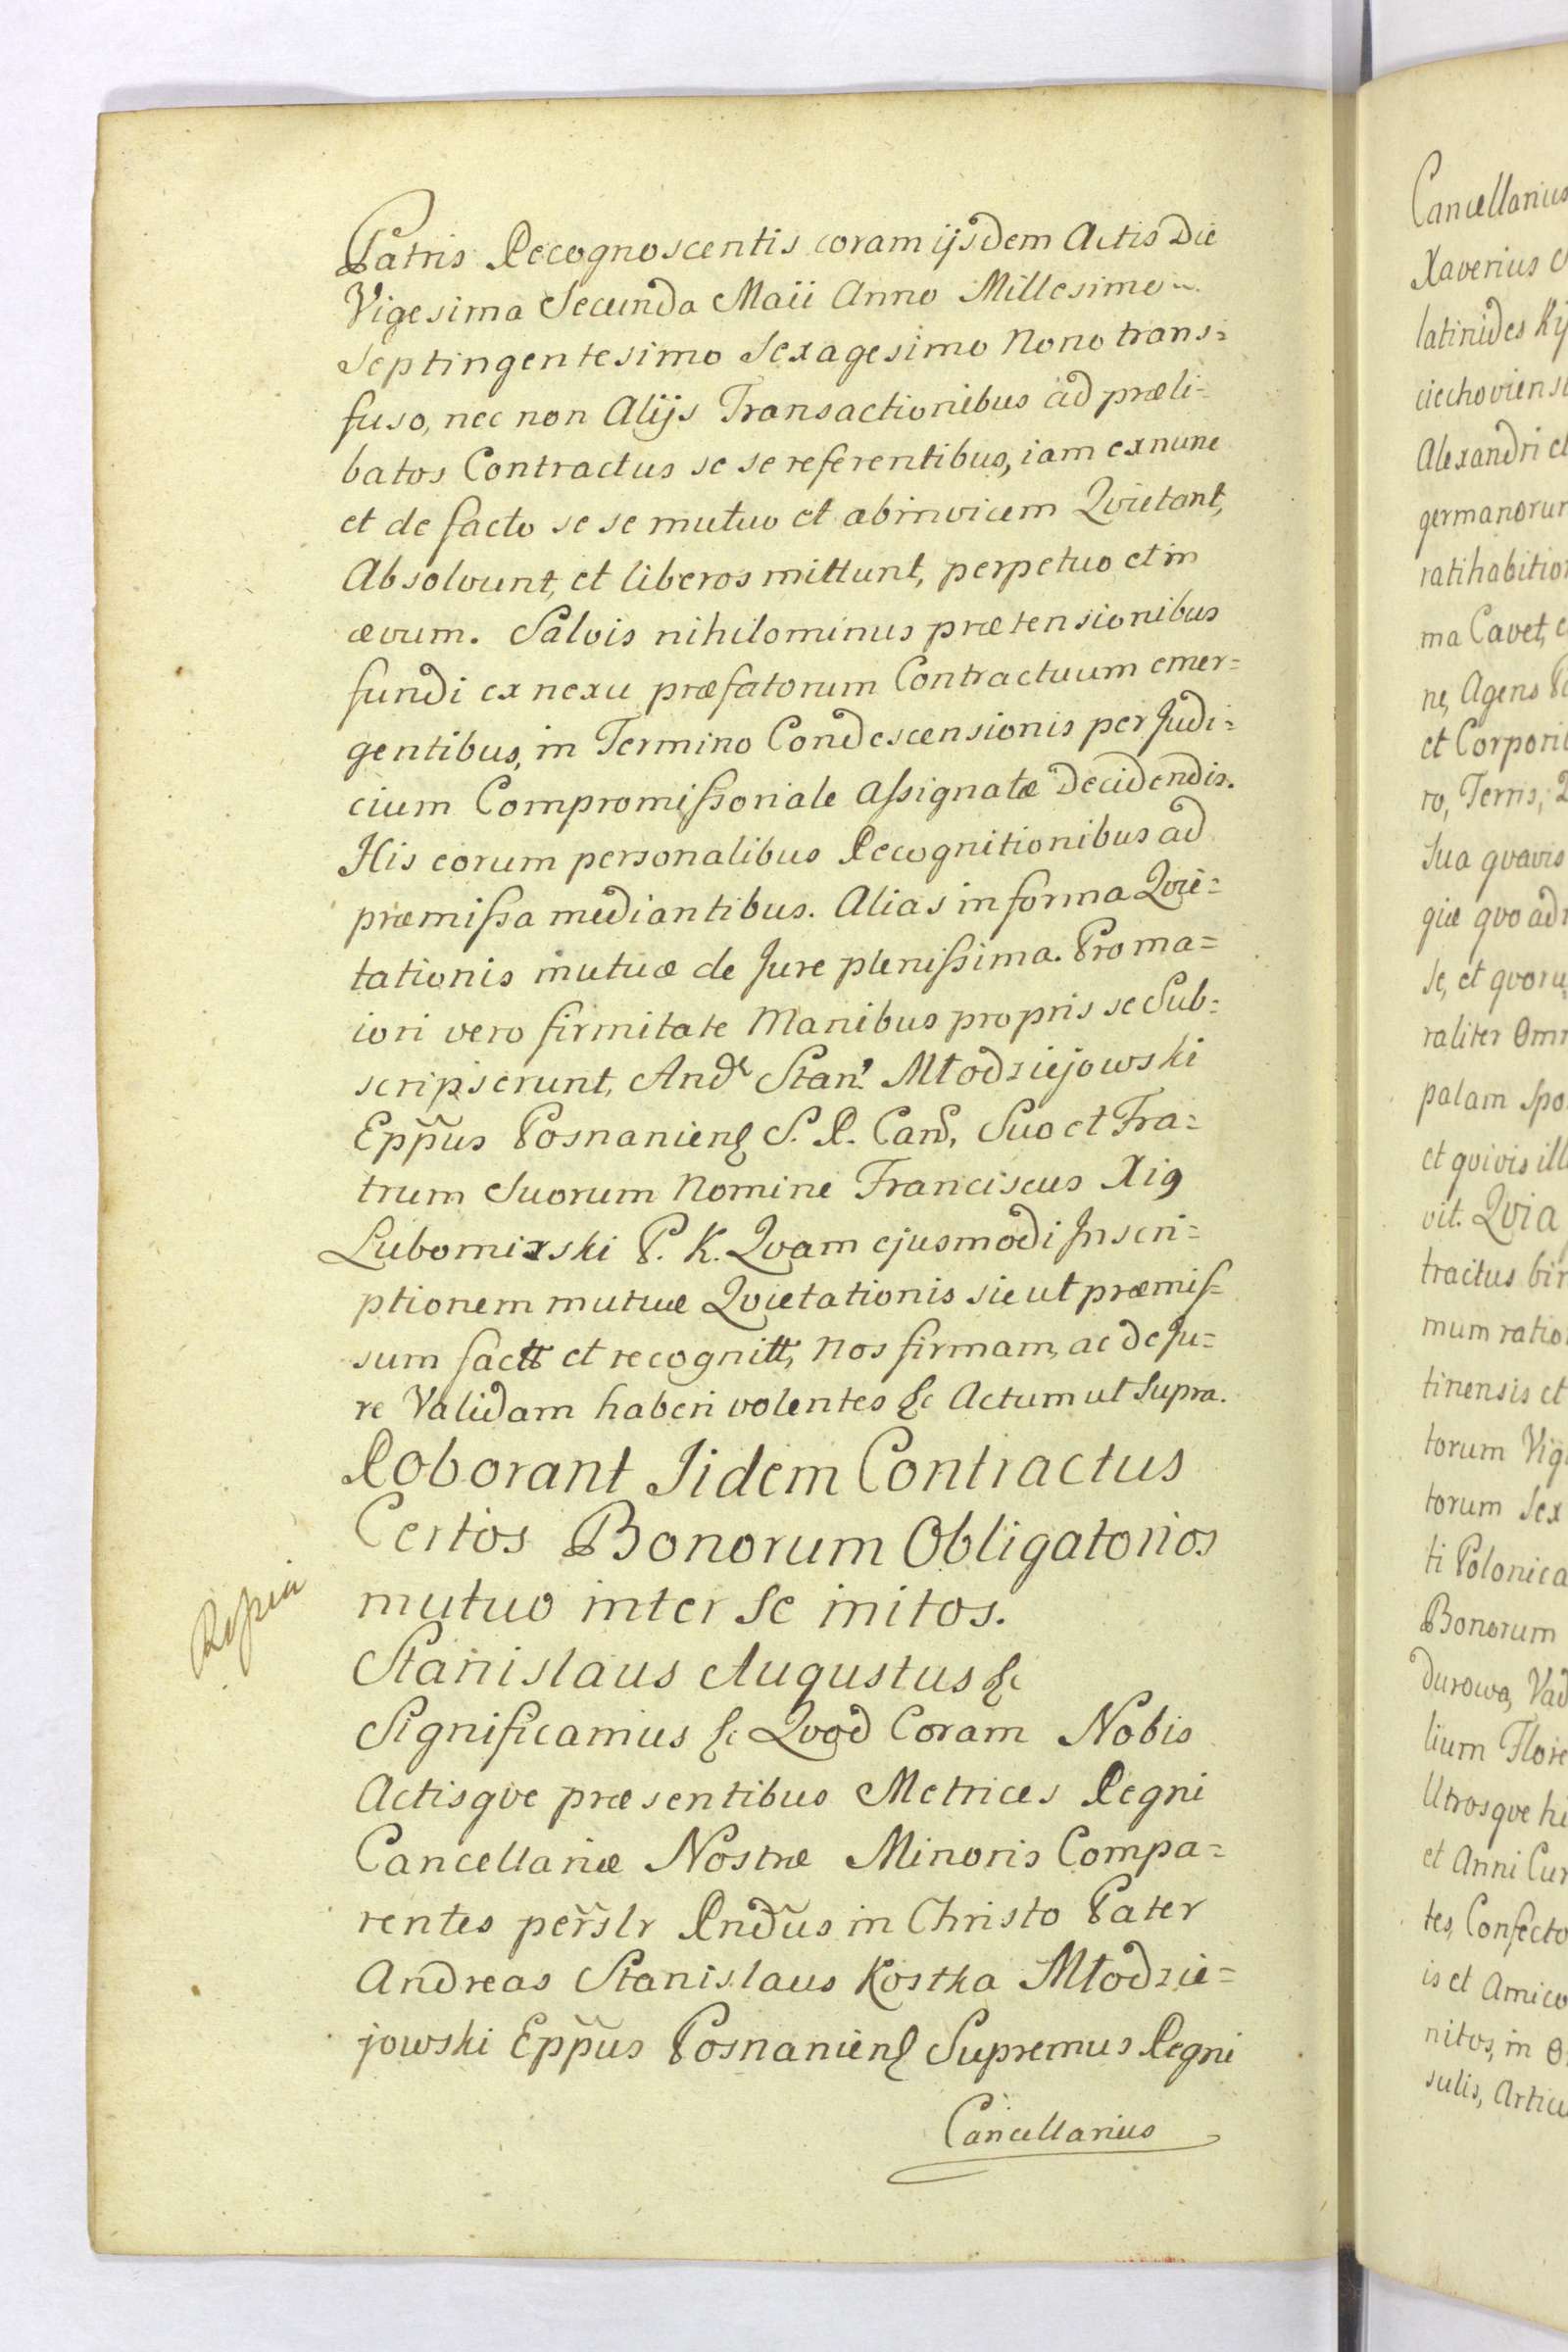 Patris Recognoscentis coram ijsdem Actis Die
Vigesima Secunda Maii Anno Millesimo
Septingentesimo Sexagesimo Nono trans=
fuso, nec non Alijs Transactionibus ad præli=
batos Contractus se se referentibus, iam exnunc
et de facto se se mutuo et abinvicem Qvietant,
Absolvunt, et liberos mittunt, perpetuo et in
ævum. Salvis nihilominus prætensionibus
fundi ex nexu præfatorum Contractuum emer=
gentibus, in Termino Condescensionis per Judi=
cium Compromissoriale Assignatæ Decidendis.
His eorum personalibus Recognitionibus ad
præmissa mediantibus. Alias in forma Qvie=
tationis mutuæ de Jure plenissima. Pro ma=
iori vero firmitate Manibus propris se Sub=
scripserunt, And. Stan. Młodziejowski
Eppus Posnaniens S. R. Canc, Suo et Fra=
trum Suorum Nomine Franciscus Xże
Lubomirski P. K. Qvam ejusmodi Inscri=
ptionem mutuæ Qvietationis sicut præmis=
sum factt et recognitt, Nos firmam, ac de Ju=
re Validam haberi volentes &c Actum ut Supra.
Roborant Iidem Contractus
Certos Bonorum Obligatorios
mutuo inter Se initos.
Stanislaus Augustus &c
Significamus &c Qvod Coram Nobis
Actisqve præsentibus Metrices Regni
Cancellariæ Nostræ Minoris Compa=
rentes perslr Rndus in Christo Pater
Andreas Stanislaus Kostka Młodzie=
jowski Eppus Posnaniens Supremus Regni
Cancellarius
Cancellarius
Xaverius
latinides Kij
ciechoviens
Alexandri et
germanorum
ratihabitio
ma Cavet,
ne, Agens
et Corpori
ro, Terris,
Sua qvavis
qve qvo ad
se, et qvoru
raliter Omn
palam Spo
et qvivis ill
vit. Qvia
tractus bi
mum ratio
tinensis et
torum Vig
torum Sex
ti Polonica
Bonorum
durowa, Vad
lium Flore
Utrosqve hi
et Anni Cur
tes, Confecto
is et Amico
nitos, in O
sulis, Articu